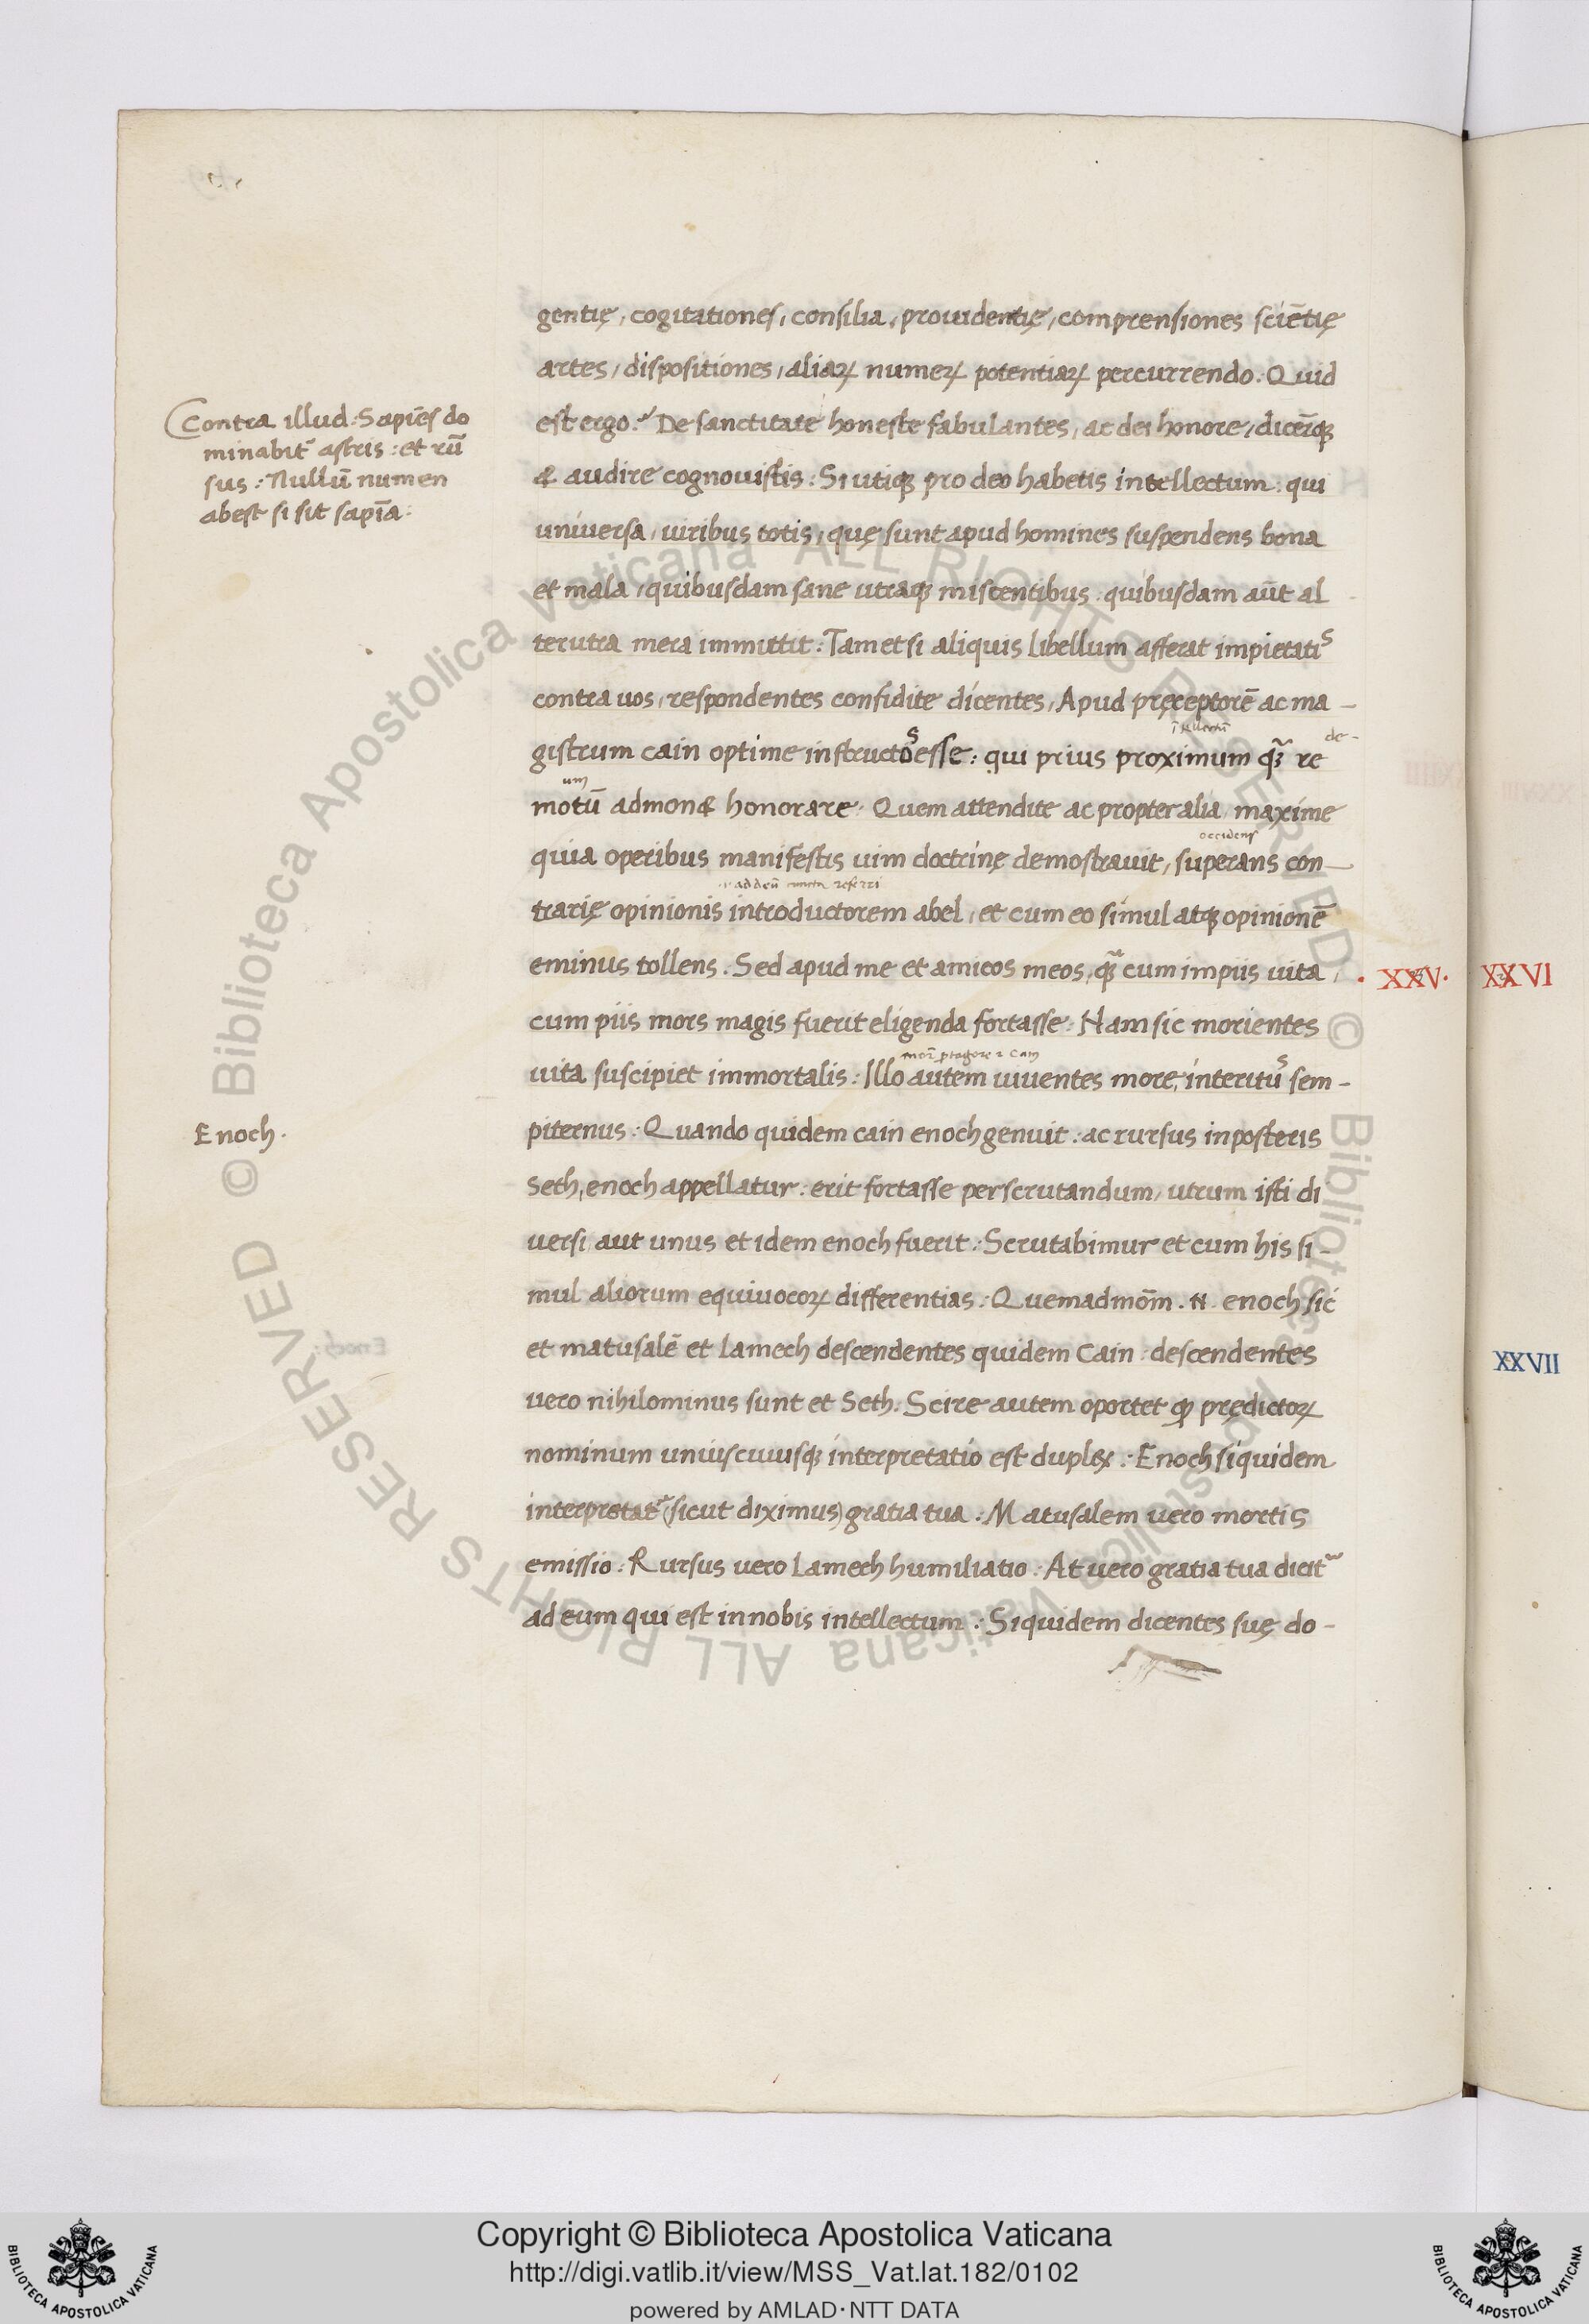 gentię, cogitationes, consilia, prouidentię, comprensiones sciētię
artes, dispositiones, aliaꝝ numeꝝ potentiaꝝ percurrendo. Quid
est ergo? De sanctitate honeste fabulantes, ac dei honore, dicerēqꝫ
& audire cognouistis: Si utiqꝫ pro deo habetis intellectum: qui
uniuersa, uiribus totis, quę sunt apud homines suspendens bona
et mala, quibusdam sane utraqꝫ miscentibus. quibusdam aūt al
terutra mera immittit: Tametsi aliquis libellum afferat impietatiˢ
contra uos, respondentes confidite dicentes, Apud pręceptorē ac ma-
gistrum cain optime instructos esse: qui prius proximum qꝫ̃ re
de-
um
motū admon& honorare. Quem attendite ac propter alia, maxime
occidens
quia operibus manifestis uim doctrinę demostrauit, superans con-
ad deū referri
trarię opinionis introductorem abel, et cum eo simul atqꝫ opinionē
eminus tollens. Sed apud me et amicos meos, qꝫ̃ cum impiis uita,
cum piis mors magis fuerit eligenda fortasse: Nam sic morientes
uita suscipiet immortalis: Illo autem uiuentes more, interituˢ sem-
piternus: Quando quidem cain enoch genuit: ac rursus in posteris
Seth, enoch appellatur: erit fortasse perscrutandum, utrum isti di
uersi aut unus et idem enoch fuerit: Scrutabimur et cum his si-
mul aliorum equiuocoꝝ differentias: Quemadmōm. N. enoch sic
et matusalē et Lamech descendentes quidem Cain: descendentes
uero nihilominus sunt et Seth. Scire autem oportet qꝫ prędictoꝝ
nominum uniuscuiusqꝫ interpretatio est duplex: Enoch siquidem
interpretat̃ (sicut diximus) gratia tua: Matusalem uero mortis
emissio: Rursus uero Lamech humiliatio: At uero gratia tua dicit̃
ad eum qui est in nobis intellectum: Siquidem dicentes suę do-
Contra illud: Sapiēs do
minabit̃ astris: et rū
sus: Nullū numen
abest si sit sapīa:
Enoch.
. XXV.
XXVI
XXVII
© Biblioteca Apostolica Vaticana ALL RIGHTS RESERVED
© Biblioteca Apostolica Vaticana ALL RIGHTS RESERVED
Copyright © Biblioteca Apostolica Vaticana
http://digi.vatlib.it/view/MSS_Vat.lat.182/0102
powered by AMLAD·NTT DATA
BIBLIOTECA APOSTOLICA VATICANA
BIBLIOTECA APOSTOLICA VATICANA